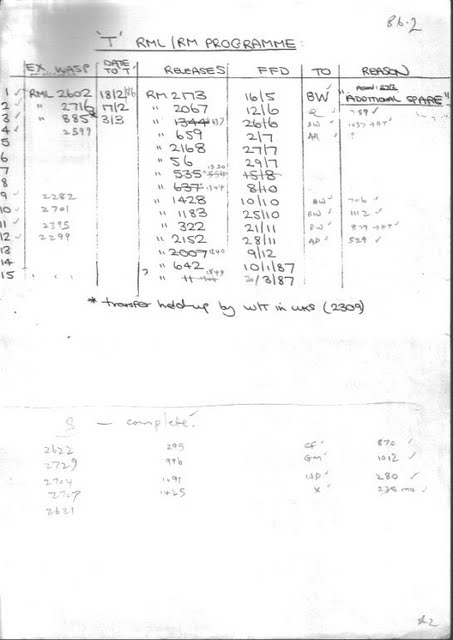 86.2
'T' RML/RM PROGRAMME
EX. WASP DATE TO 'T' RELEASES FFD TO REASON
1 RML 2602 18/2/86 RM 2173 16/5 BW "ADDITIONAL SPARE"
2 " 2716 17/2 " 2067 12/6 Q 789
3 " 885* 3/3 " 1344 26/6 BW 1037→
4 " 2599 " 659 2/7 AR ?
5 " 2168 27/7
6 " 56 29/7
7 " 535 +5+8
8 " 637 8/10
9 2282 " 1428 10/10 BW 706
10 2701 " 1183 25/10 BW 1112
11 2395 " 322 21/11 BW 879→
12 2299 " 2152 28/11 AD 529
13 " 2007 9/12
14 " 642 10/1/87
15 ? " /3/87
* transfer held-up by WT in wks (2309)
S — complete.
2622 295 CF 870
2729 996 GM 1012
2704 1091 WD 280
2707 1425 X 235
2621